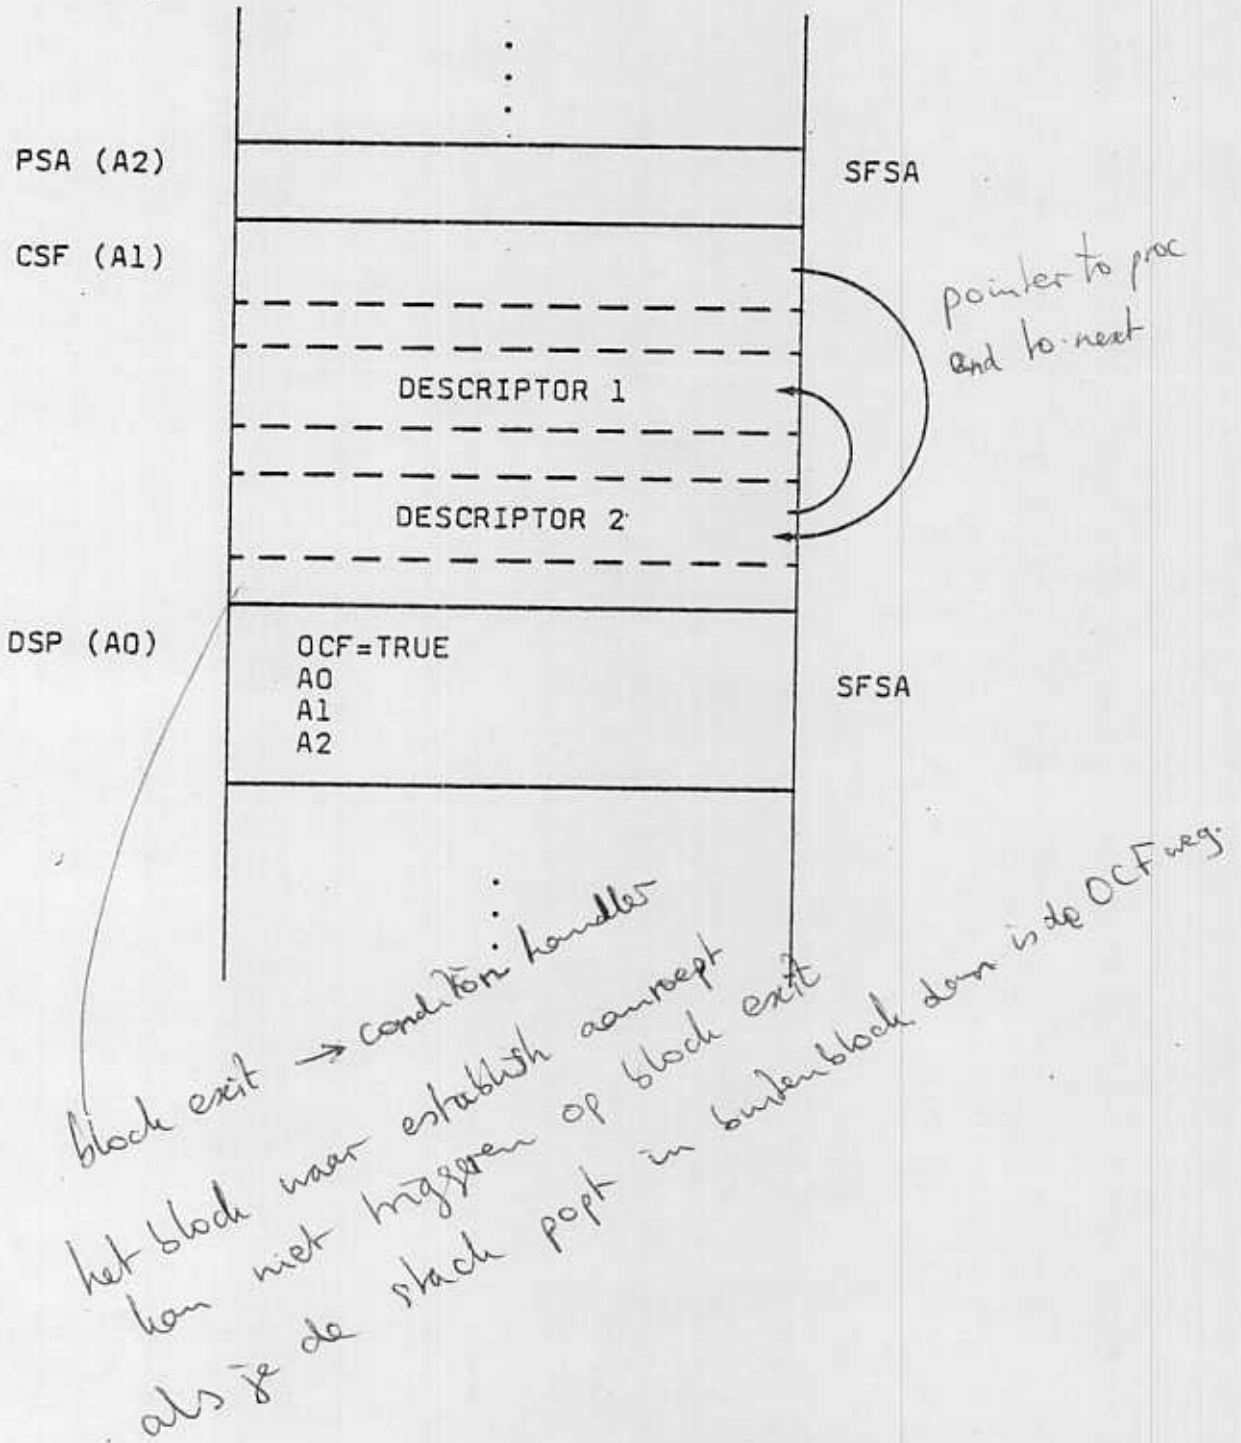 PSA (A2)
SFSA
CSF (A1)
pointer to proc
and to next
DESCRIPTOR 1
DESCRIPTOR 2
DSP (A0)
OCF=TRUE
A0
A1
A2
SFSA
block exit → condition handler
het block waar establish aanroept
kan niet triggeren op block exit
als je de stack popt in buitenblock dan is de OCF weg.